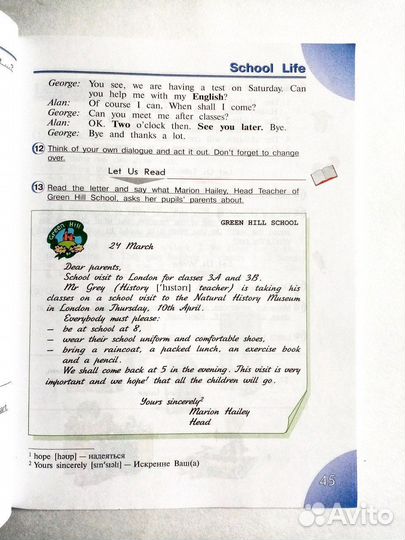 School Life
George: You see, we are having a test on Saturday. Can
you help me with my English?
Alan: Of course I can. When shall I come?
George: Can you meet me after classes?
Alan: OK. Two o'clock then. See you later. Bye.
George: Bye and thanks a lot.
12 Think of your own dialogue and act it out. Don't forget to change
over.
Let Us Read
13 Read the letter and say what Marion Hailey, Head Teacher of
Green Hill School, asks her pupils' parents about.
Green Hill
GREEN HILL SCHOOL
24 March
Dear parents,
School visit to London for classes 3A and 3B.
Mr Grey (History ['hɪstərɪ] teacher) is taking his
classes on a school visit to the Natural History Museum
in London on Thursday, 10th April.
Everybody must please:
– be at school at 8,
– wear their school uniform and comfortable shoes,
– bring a raincoat, a packed lunch, an exercise book
and a pencil.
We shall come back at 5 in the evening. This visit is very
important and we hope¹ that all the children will go.
Yours sincerely²
Marion Hailey
Head
¹ hope [həʊp] — надеяться
² Yours sincerely [sɪn'sɪəlɪ] — Искренне Ваш(а)
45
Avito